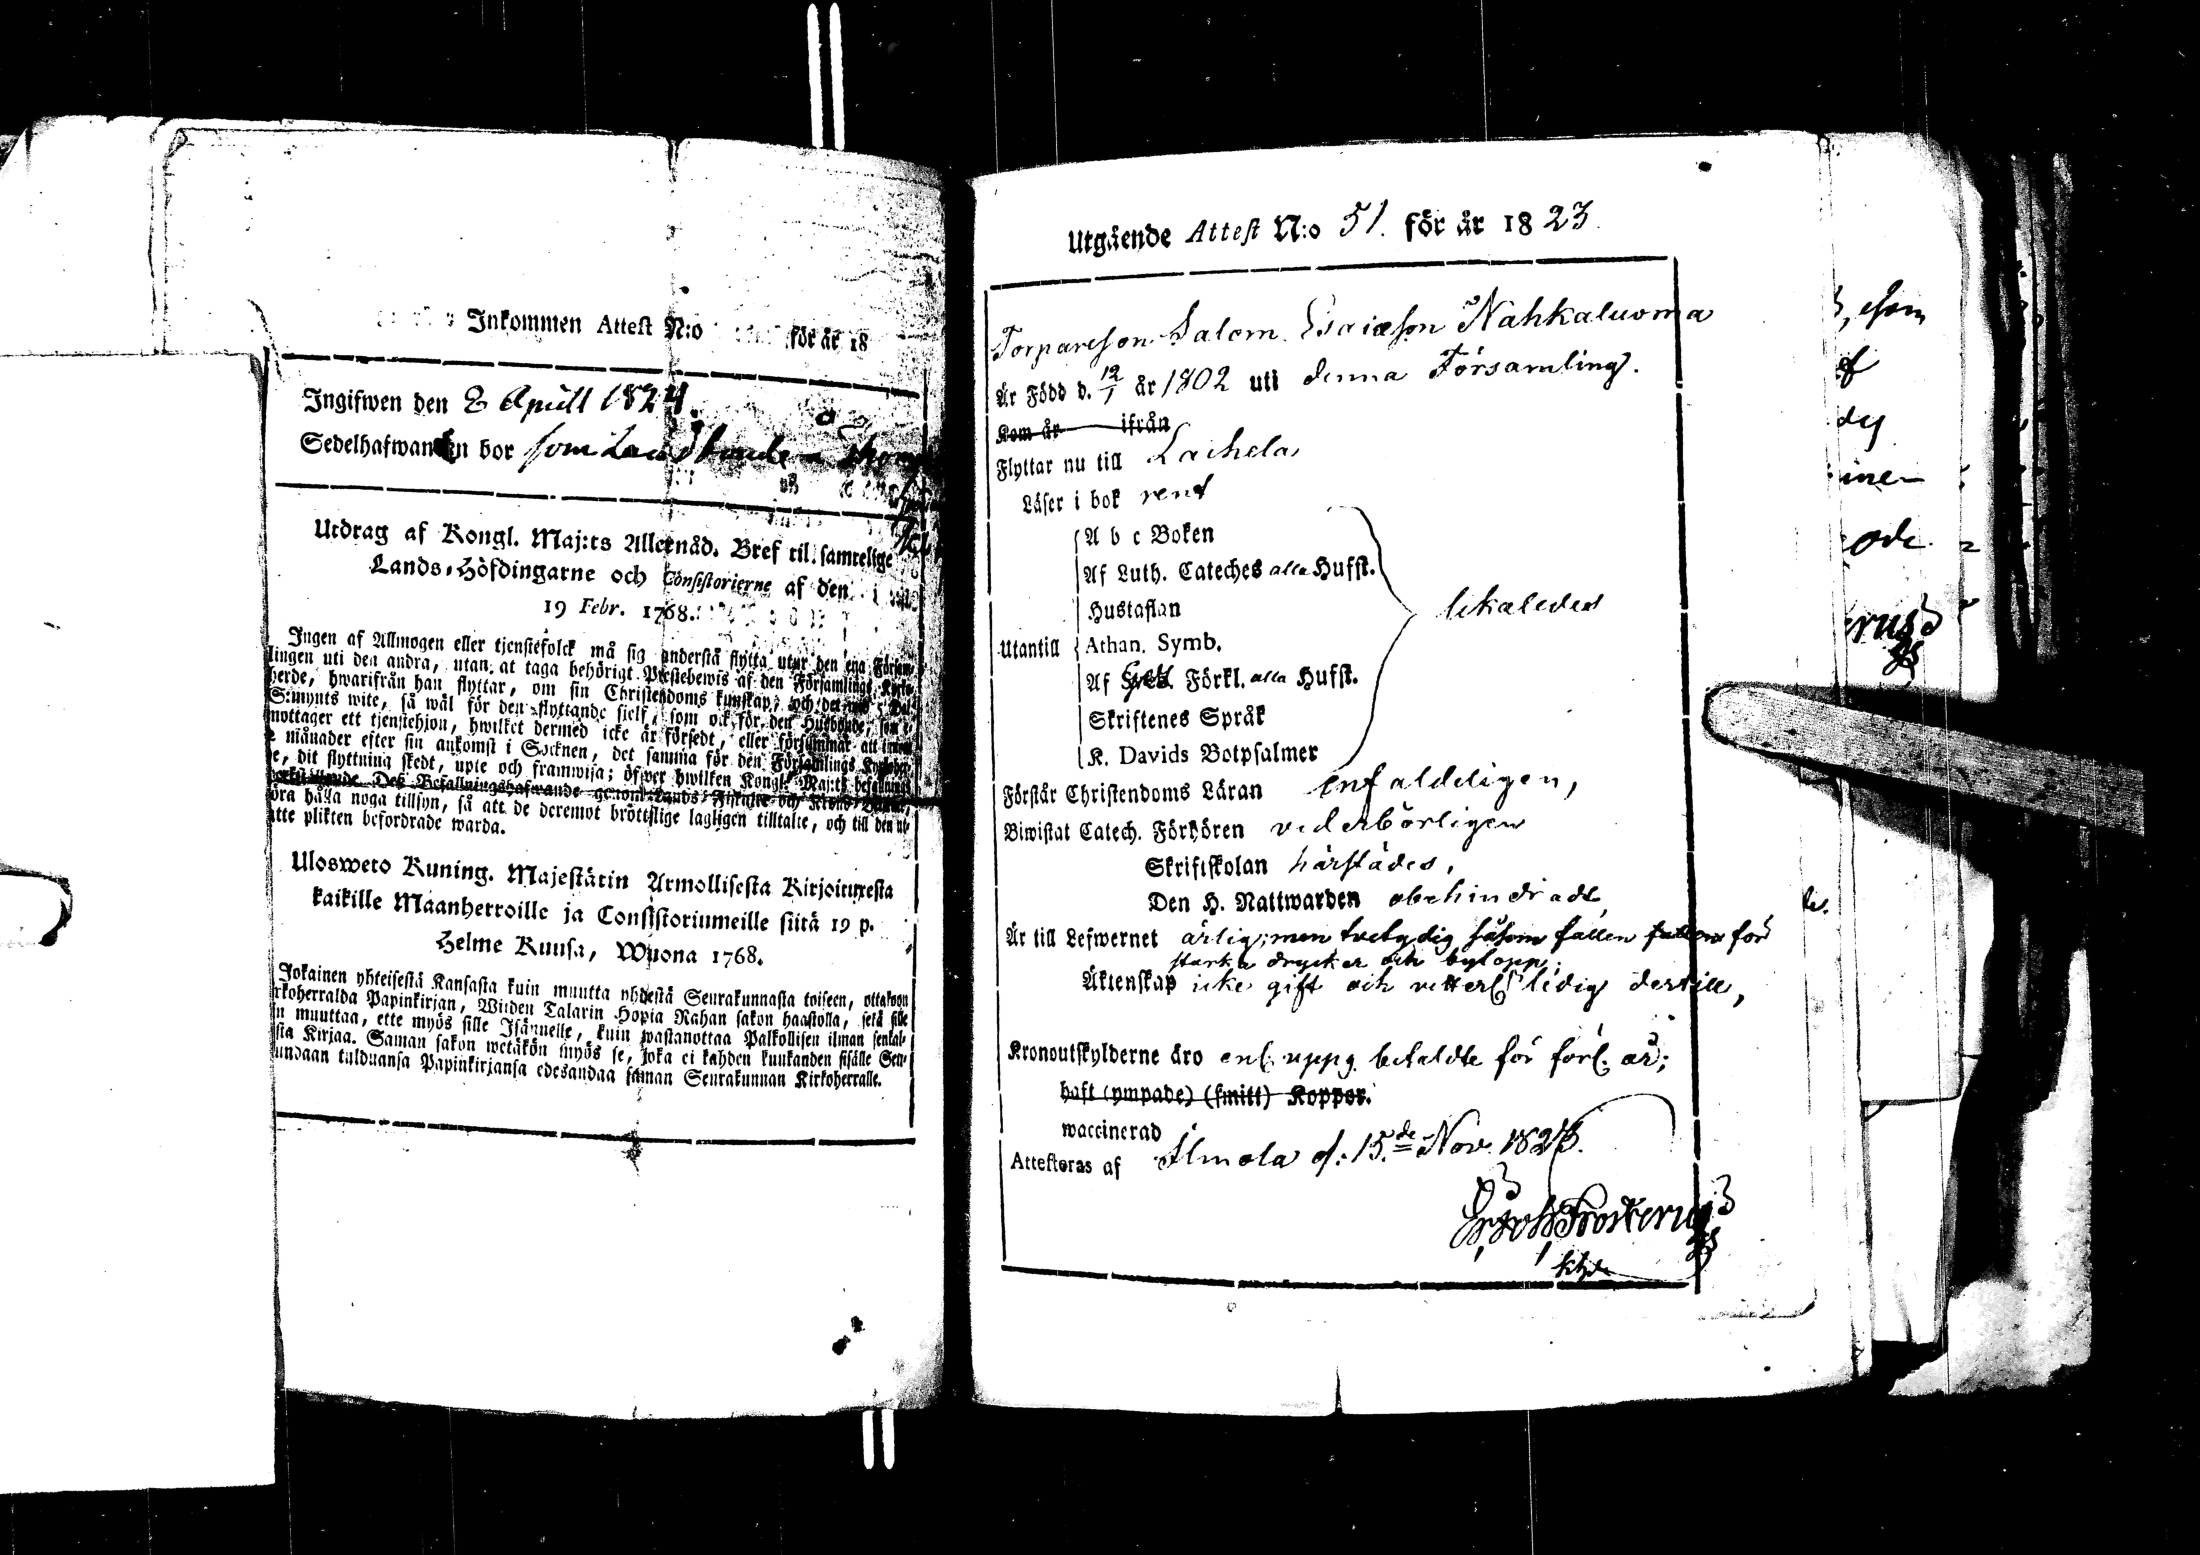 Inkommen Attest N:o för år 18
Ingifwen den 2 Aprill 1824.
Sedelhafwanden bor som Landbonde
Utdrag af Kongl. Maj:ts Allernåd. Bref til samtelige
Lands-Höfdingarne och Consistorierne af den
19 Febr. 1768.
Ingen af Allmogen eller tjenstefolck må sig understå flytta utur den ena Försam-
lingen uti den andra, utan at taga behörigt Prestebewis af den Församlings Kyrko-
herde, hwarifrån han flyttar, om sin Christendoms kunskap, och det wid 5 Dal.
S:mynts wite, så wäl för den flyttande sjelf, som ock för den Husbonde, som e-
mottager ett tjenstehjon, hwilket dermed icke är försedt, eller försummar att innom
2 månader efter sin ankomst i Socknen, det samma för den Församlings Kyrkoher-
de, dit flyttning skedt, upte och framwisa; öfwer hwilken Kongl. Maj:ts befallnings
werkställande Des Befallningshafwande genom Lands-Fiskaler och Krono-Betjente
göra hålla noga tillsyn, så att de deremot bröttslige lagligen tilltalte, och till den ut-
satte plikten befordrade warda.
Ulosweto Kuning. Majestätin Armollisesta Kirjoituxesta
kaikille Maanherroille ja Consistoriumeille siitä 19 p.
Helme Kuusa, Wuona 1768.
Jokainen yhteisestä Kansasta kuin muutta yhdestä Seurakunnasta toiseen, ottakoon
rkoherralda Papinkirjan, Wiiden Talarin Hopia Rahan sakon haastolla, setä sille
n muuttaa, ette myös sille Isännelle, kuin wastanottaa Palkollisen ilman senkal-
sta Kirjaa. Saman sakon wetäkön myös se, joka ei kahden kuukanden sisälle Seu-
undaan tulduansa Papinkirjansa edesandaa saman Seurakunnan Kirkoherralle.
Utgående Attest N:o 51. för år 1823.
Torpareson Salom. Esaiæson Nahkaluoma
Är Född d. 12/1 år 1802 uti denna Församling.
Kom år ifrån
Flyttar nu till Laihela
Läser i bok rent
A b c Boken
Af Luth. Cateches alla Hufst.
Hustaflan
Utantill Athan. Symb.
Af Förkl. alla Hufst.
Skriftenes Språk
K. Davids Botpsalmer
likaledes
Förstår Christendoms Läran enfaldeligen,
Biwistat Catech. Förhören vederbörligen
Skriftskolan härstädes,
Den H. Nattwarden obehindradt,
Är till Lefwernet ärlig; men tvetydig såsom fallen fallen för
starka drycker och bylopp;
Äktenskap icke gift och vetterl. ledig dertill,
Kronoutskylderne äro enl. uppg. betaldte för förl. år;
haft (ympade) (smitt) Koppor.
waccinerad
Attesteras af Ilmola d: 15.de Nov. 1823.
Frosterus
khde